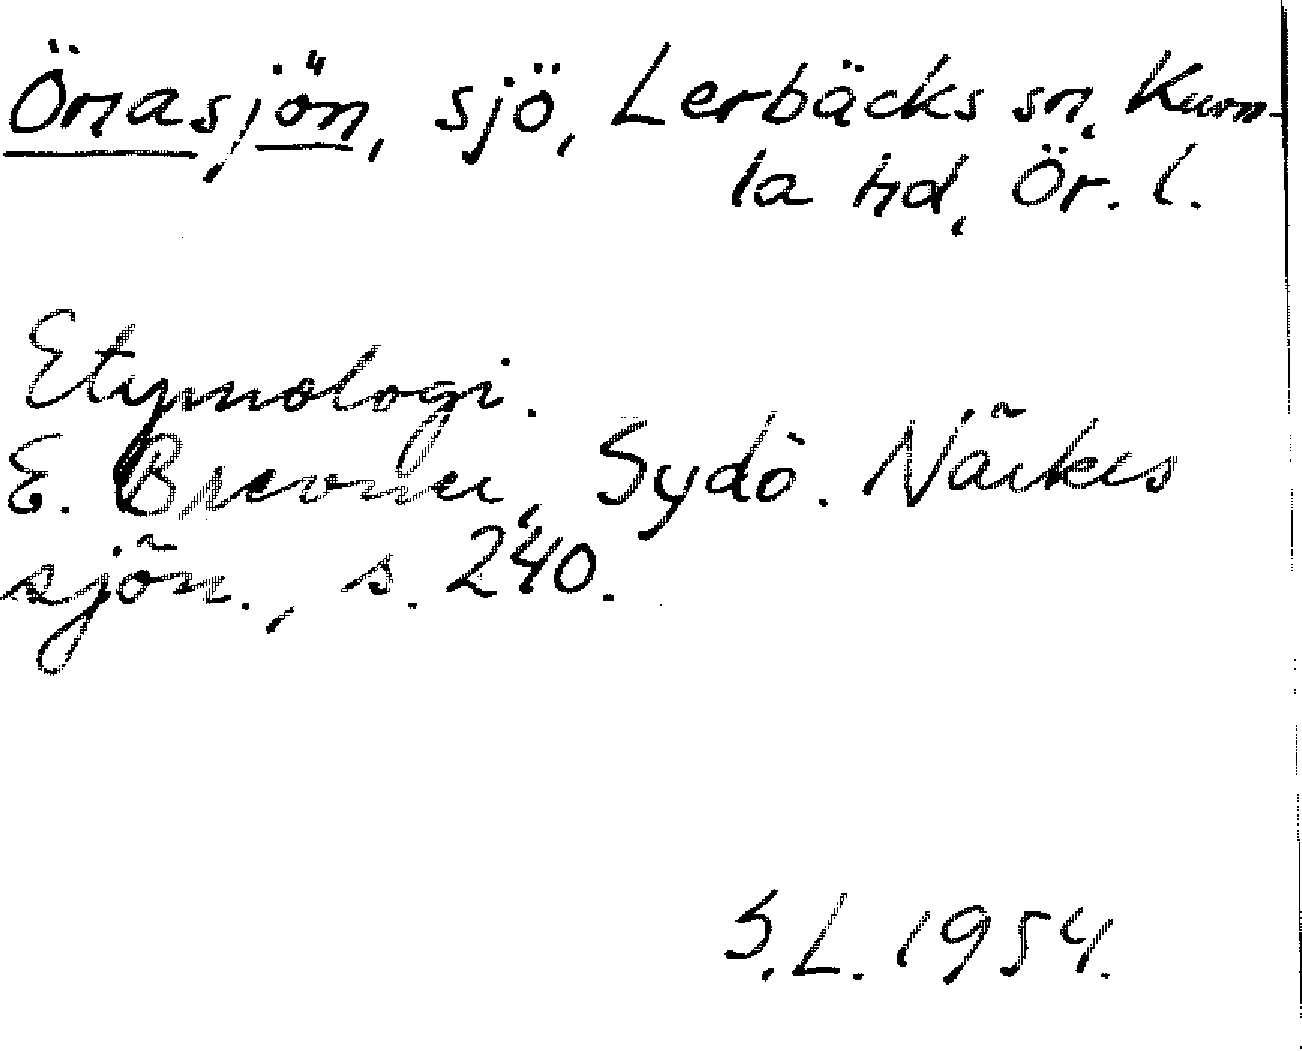 Önasjön, sjö, Lerbäcks sn, Kum-
la hd, Ör. l.
Etymologi.
E. Brevner, Sydö. Närkes
sjön., s. 240.
S.L. 1954.